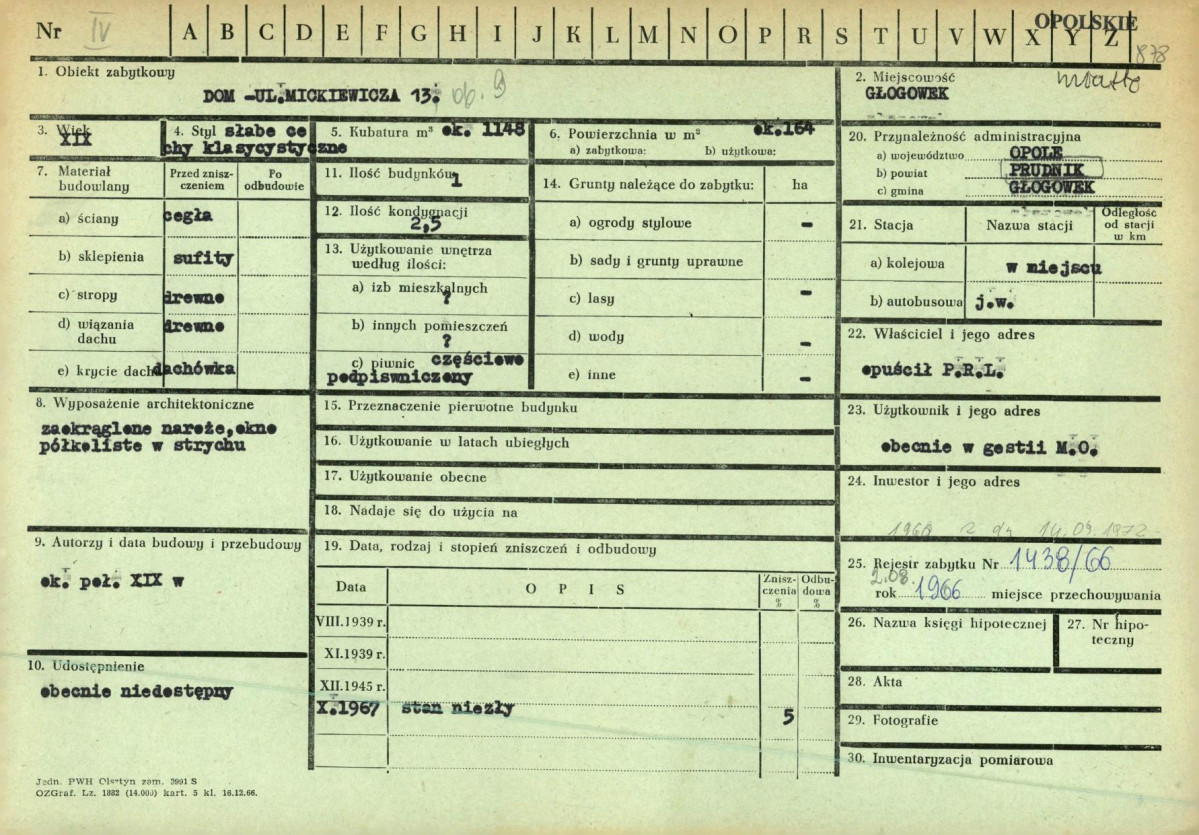 Nr IV A B C D E F G H I J K L Ł M N O P R S T U V W X Y Z
OPOLSKIE
878
1. Obiekt zabytkowy
DOM -UL.MICKIEWICZA 13. ob. 9
2. Miejscowość
miasto
GŁOGOWEK
3. Wiek
XIX
4. Styl słabe ce
chy klasycystyczne
5. Kubatura m³ ok. 1148
6. Powierzchnia w m² ok.164
a) zabytkowa: b) użytkowa:
7. Materiał budowlany
Przed znisz-
czeniem
Po
odbudowie
a) ściany cegła
b) sklepienia sufity
c) stropy drewno
d) wiązania
dachu drewno
e) krycie dachu dachówka
8. Wyposażenie architektoniczne
zaokrąglone naroże,okno
półkoliste w strychu
9. Autorzy i data budowy i przebudowy
ok. poł. XIX w
10. Udostępnienie
obecnie niedostępny
11. Ilość budynków 1
12. Ilość kondygnacji
2,5
13. Użytkowanie wnętrza
według ilości:
a) izb mieszkalnych
?
b) innych pomieszczeń
?
c) piwnic częściowo
podpiwniczony
14. Grunty należące do zabytku: ha
a) ogrody stylowe -
b) sady i grunty uprawne
c) lasy -
d) wody -
e) inne -
15. Przeznaczenie pierwotne budynku
16. Użytkowanie w latach ubiegłych
17. Użytkowanie obecne
18. Nadaje się do użycia na
19. Data, rodzaj i stopień zniszczeń i odbudowy
Data OPIS
Znisz-
czenia
%
Odbu-
dowa
%
VIII.1939 r.
XI.1939 r.
XII.1945 r.
X.1967 stan niezły 5
20. Przynależność administracyjna
a) województwo OPOLE
b) powiat PRUDNIK
c) gmina GŁOGOWEK
21. Stacja Nazwa stacji
Odległość
od stacji
w km
a) kolejowa w miejscu
b) autobusowa j.w.
22. Właściciel i jego adres
opuścił P.R.L.
23. Użytkownik i jego adres
obecnie w gestii M.O.
24. Inwestor i jego adres
z dn 14.09.1972
25. Rejestr zabytku Nr 1438/66
2.08.
rok 1966 miejsce przechowywania
26. Nazwa księgi hipotecznej
27. Nr hipo-
teczny
28. Akta
29. Fotografie
30. Inwentaryzacja pomiarowa
Jedn. PWH Olsztyn zam. 3991 S
OZGraf. Lz. 1882 (14.000) kart. 5 kl. 16.12.66.